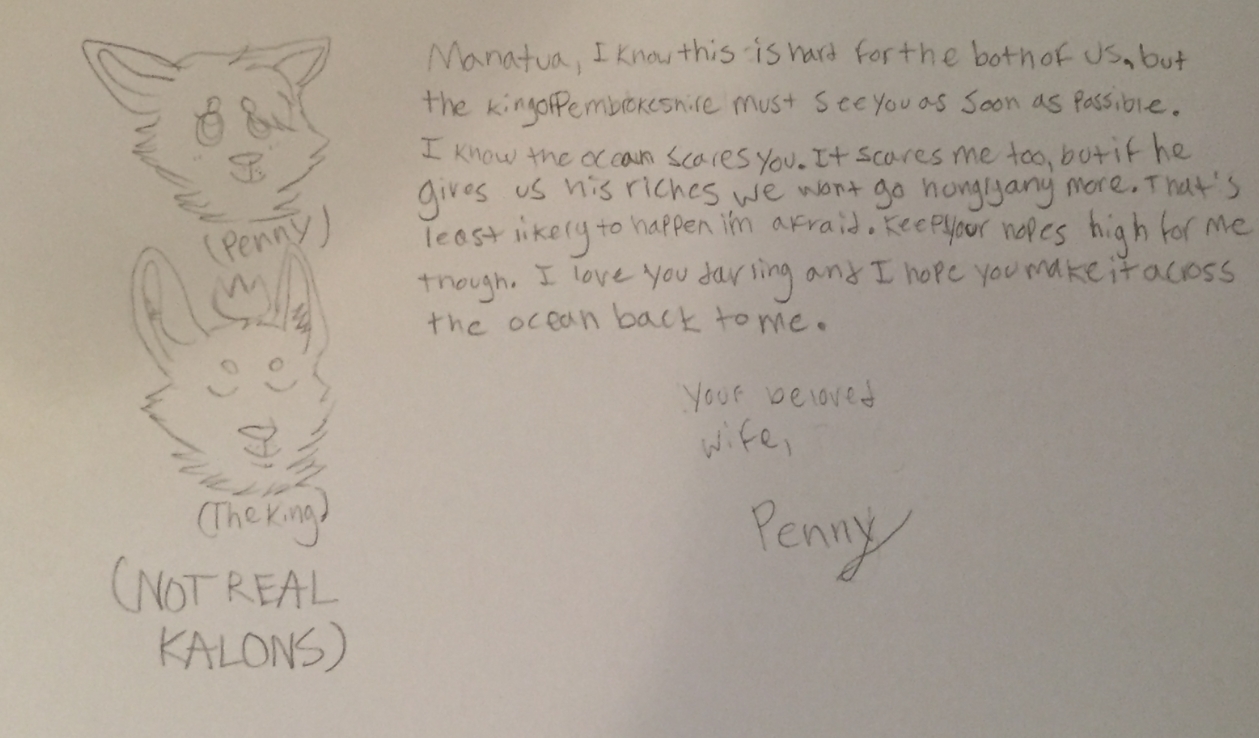 Manatua, I know this is hard for the both of us, but
the king of Pembrokeshire must see you as soon as possible.
I know the ocean scares you. It scares me too, but if he
gives us his riches we wont go hungry any more. That's
least likely to happen i'm afraid. Keep your hopes high for me
though. I love you darling and I hope you make it across
the ocean back to me.
Your beloved
wife,
Penny
(Penny)
(The King)
(NOT REAL
KALONS)